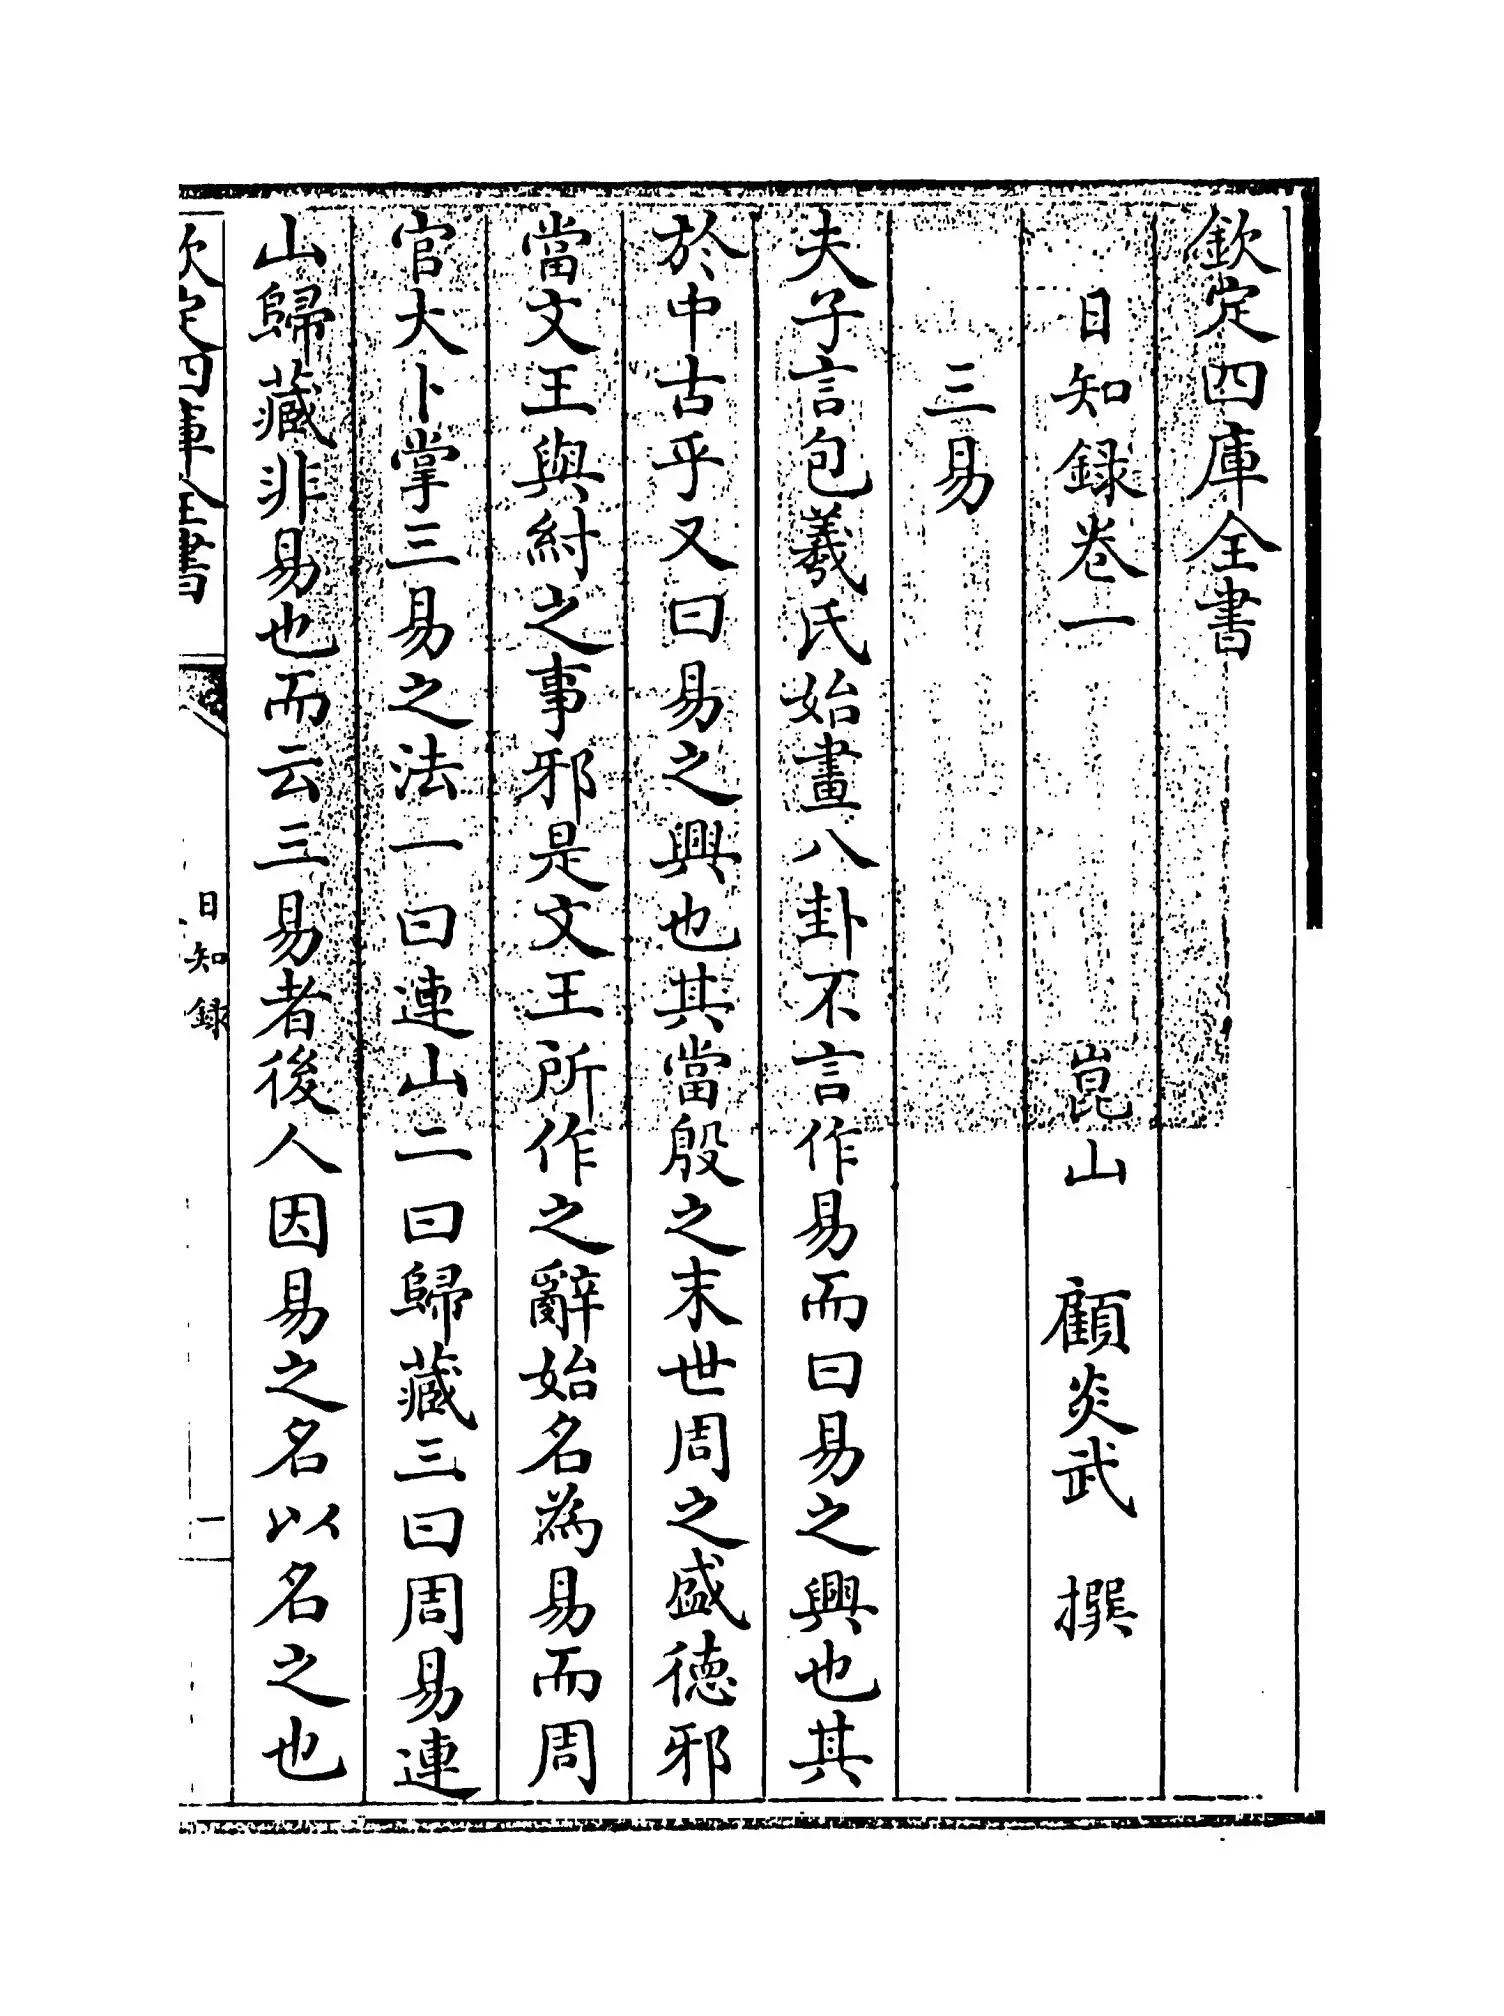 欽定四庫全書
日知録卷一　崑山　顧炎武　撰
三易
夫子言包羲氏始畫八卦不言作易而曰易之興也其
於中古乎又曰易之興也其當殷之末世周之盛德邪
當文王與紂之事邪是文王所作之辭始名為易而周
官大卜掌三易之法一曰連山二曰歸藏三曰周易連
山歸藏非易也而云三易者後人因易之名以名之也
欽定四庫全書
日知録
一